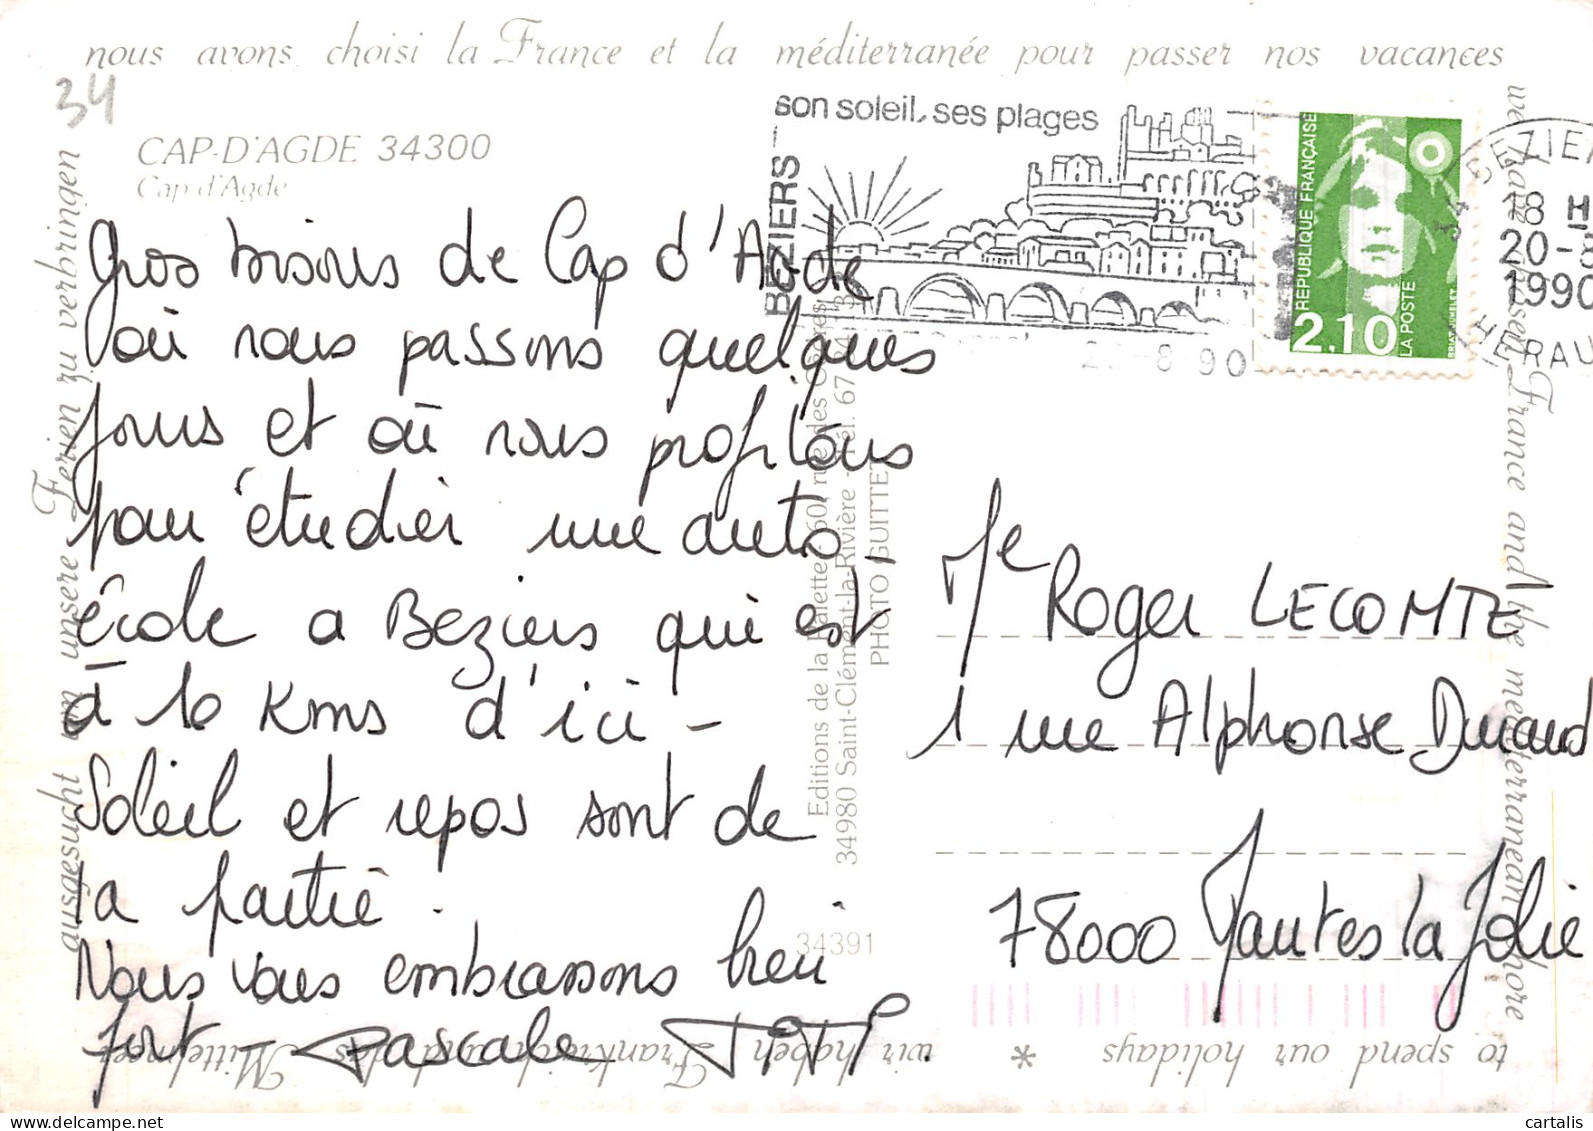 nous avons choisi la France et la méditerranée pour passer nos vacances
34
CAP-D'AGDE 34300
Cap d'Agde
son soleil, ses plages
BEZIERS
REPUBLIQUE FRANÇAISE
2.10
LA POSTE
BRIAT-JUMELET
18 H
20-8
1990
HERAU
8 90
Gros bisous de Cap d'Agde
où nous passons quelques
jours et où nous profitons
pour étudier une auto-
école a Beziers qui est
à 10 Kms d'ici -
Soleil et repos sont de
la partie.
Nous vous embrassons bien
fort - Pascale TITI
Editions de la Valette 60, rue des
34980 Saint-Clément-la-Rivière - Tél. 67
PHOTO GUITTET
34391
Me Roger LECOMTE
1 rue Alphonse Durand
78000 Mantes la Jolie
we have chosen France and the mediterranean shore
to spend our holidays * wir haben Frankreich und das Mittelmeer
ausgesucht um unsere Ferien zu verbringen
cartalis.com